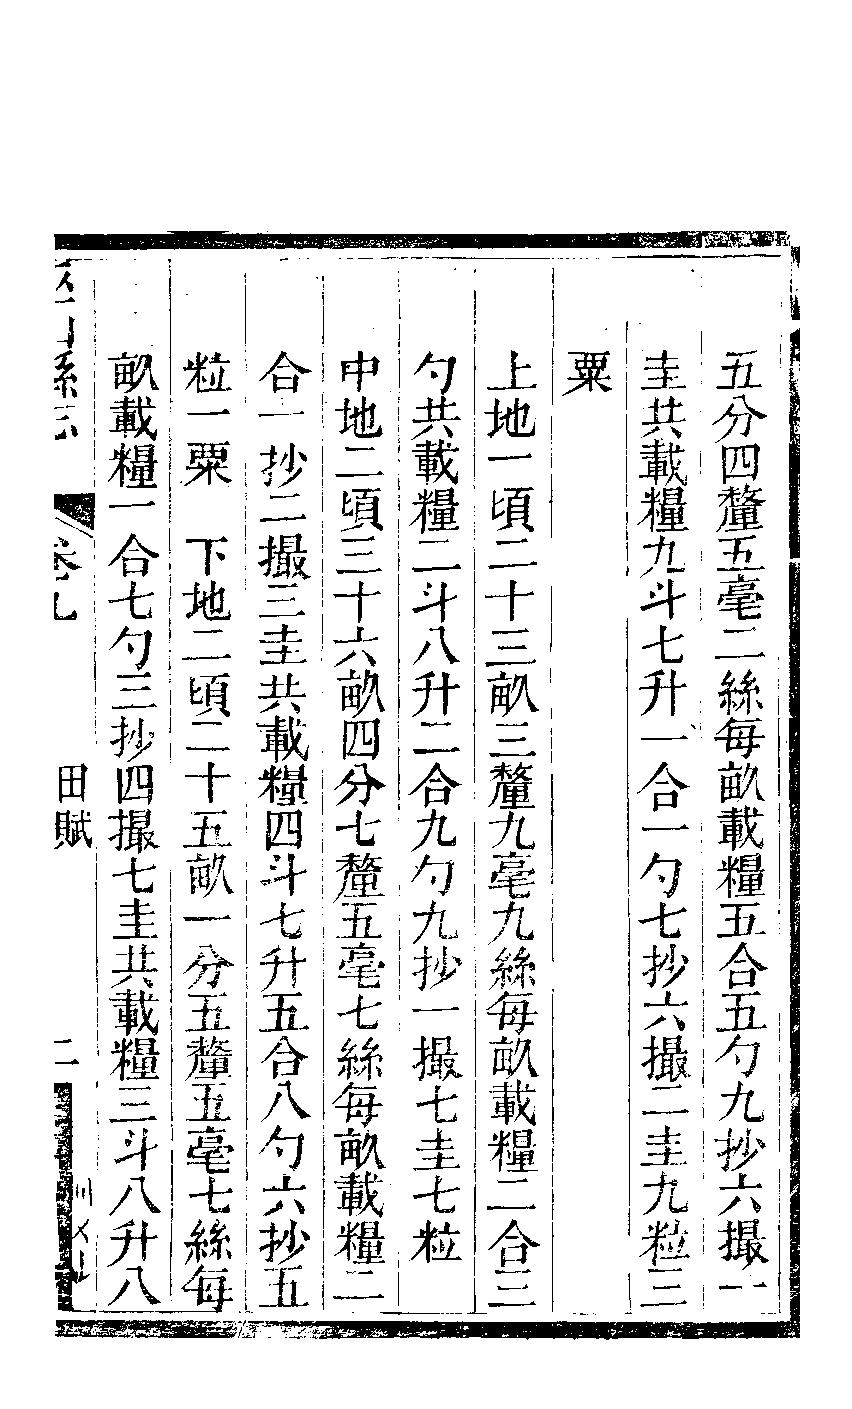 五分四釐五毫二絲每畝載糧五合五勺九抄六撮一
圭共載糧九斗七升一合一勺七抄六撮二圭九粒三
粟
上地一頃二十三畝三釐九毫九絲每畝載糧二合三
勺共載糧二斗八升二合九勺九抄一撮七圭七粒
中地二頃三十六畝四分七釐五毫七絲每畝載糧二
合一抄二撮三圭共載糧四斗七升五合八勺六抄五
粒一粟　下地二頃二十五畝一分五釐五毫七絲每
畝載糧一合七勺三抄四撮七圭共載糧三斗八升八
縣志　卷九　田賦　二